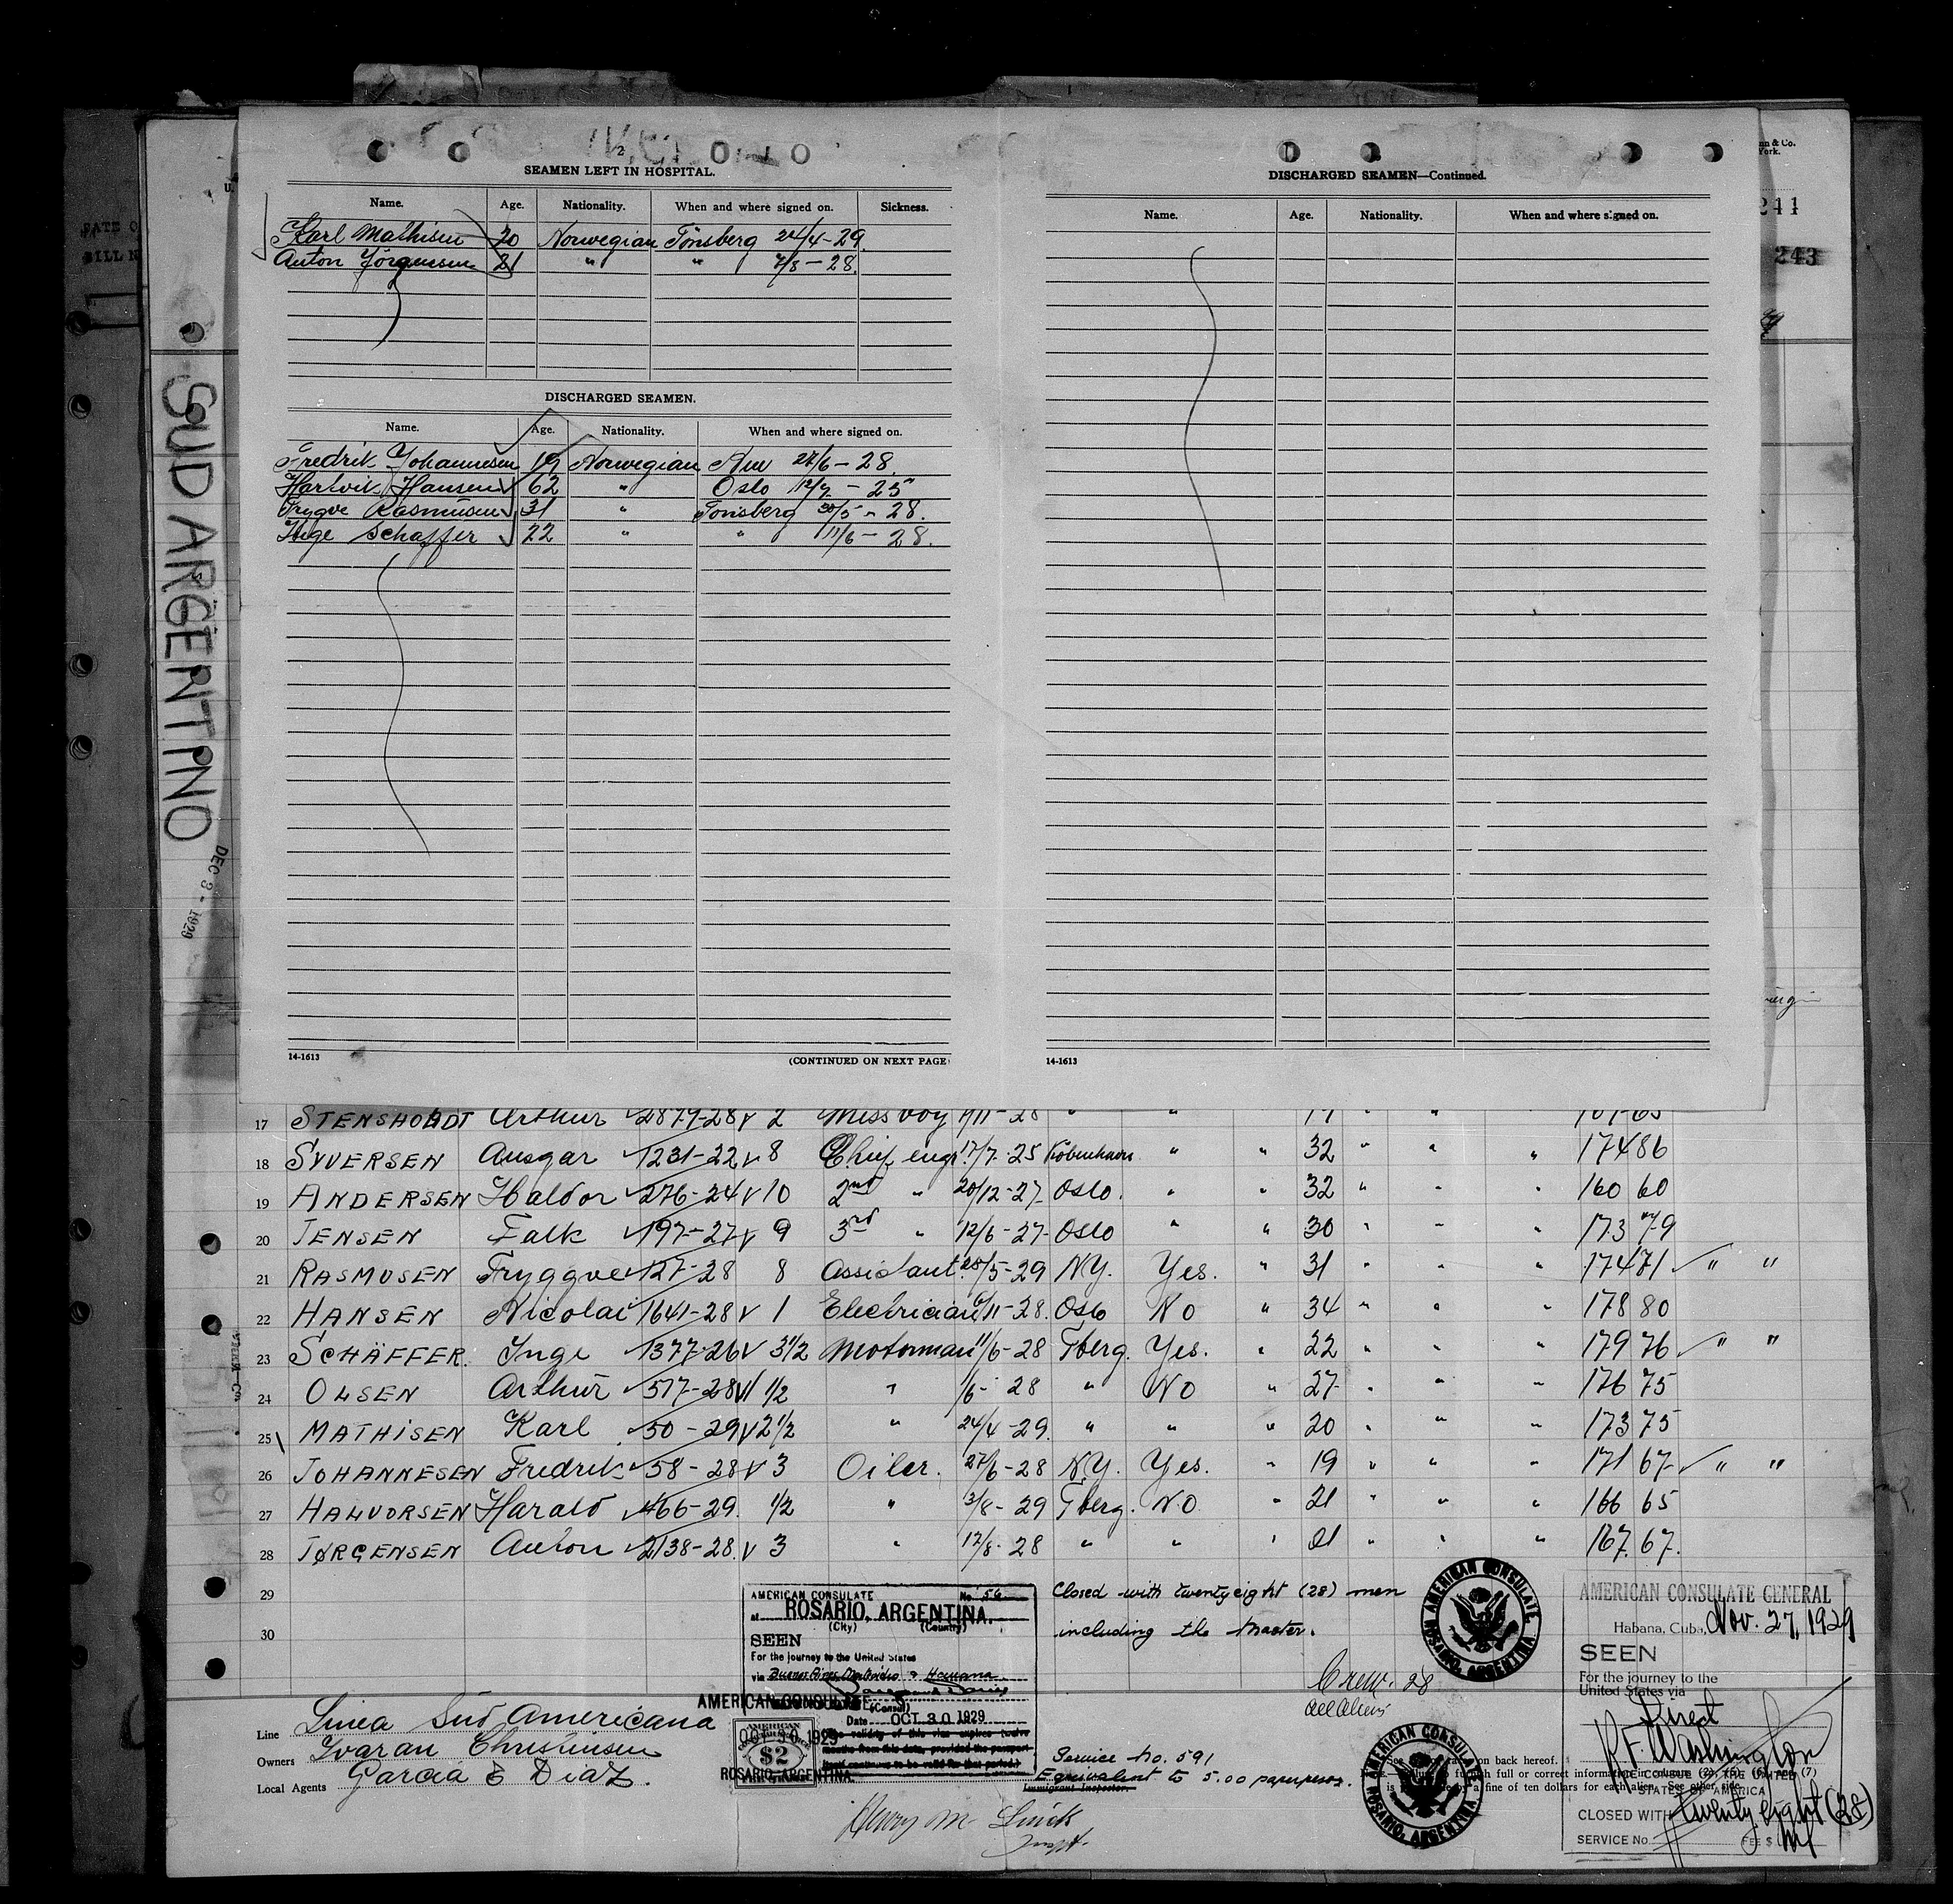 SEAMEN LEFT IN HOSPITAL.
Name. Age. Nationality. When and where signed on. Sickness.
Karl Mathisen 20 Norwegian Tönsberg 24/4-29.
Anton Jörgensen 21 " " /8-28.
DISCHARGED SEAMEN.
Name. Age. Nationality. When and where signed on.
Fredrik Johannesen 19 Norwegian 27/6-28.
Hartvik Hansen 62 " Oslo 12/7-25
Trygve Rasmusen 31 " Tonsberg /5-28.
Inge Schaffer 22 " " 11/6-28.
14-1613 (CONTINUED ON NEXT PAGE)
DISCHARGED SEAMEN—Continued.
Name. Age. Nationality. When and where signed on.
14-1613
nn & Co.
York.
241
243
SUD ARGENTINO
DEC 3 - 1929
17 STENSHOLDT Arthur 2879-28 2 Messboy /11-28 " "
18 SYVERSEN Ansgar 1231-22 8 Chief engr. 17/7-25 Köbenhavn " " 32 " " " 174 86
19 ANDERSEN Haldor 276-24 10 2nd " 20/12-27 Oslo. " " 32 " " " 160 60
20 JENSEN Falk 197-27 9 3rd " 12/6-27 Oslo " " 30 " " " 173 79
21 RASMUSEN Tryggve 127-28 8 Assistant. 28/5-29 NY. Yes. " 31 " " " 174 71 " "
22 HANSEN Nicolai 1641-28 1 Electrician /11-28. Oslo No " 34 " " " 178 80
23 SCHÄFFER. Inge 1377-26 3 1/2 Motorman 11/6-28 Tberg. Yes. " 22 " " " 179 76 " "
24 OLSEN Arthur 517-28 1 1/2 " /6-28 " No " 27 " " " 176 75
25 MATHISEN Karl 50-29 2 1/2 " 24/4-29. " " " 20 " " " 173 75
26 JOHANNESEN Fredrik 58-28 3 Oiler. 27/6-28 NY. Yes. " 19 " " " 171 67 " "
27 HALVORSEN Harald 466-29. 1/2 " 3/8-29 Tberg. No. " 21 " " " 166 65
28 JØRGENSEN Anton 2138-28. 3 " 17/8-28 " " " 21 " " " 167. 67.
29
30
AMERICAN CONSULATE No. 56
at ROSARIO, ARGENTINA.
(City) (Country)
SEEN
For the journey to the United States
via Buenos Aires, Montevideo & Havana
AMERICAN CONSULATE
(Consul)
Date OCT 30 1929
The validity of this visa expires twelve
months from this date, provided the passport
continues to be valid for that period.
AMERICAN
$2
OCT 30 1929
ROSARIO, ARGENTINA.
Closed with twenty eight (28) men
including the Master.
Crew. 28
all aliens
AMERICAN CONSULATE
ROSARIO, ARGENTINA.
AMERICAN CONSULATE
ROSARIO, ARGENTINA.
AMERICAN CONSULATE GENERAL
Habana, Cuba, Nov. 27, 1929
SEEN
For the journey to the
United States via
Direct
R F. Washington
VICE CONSUL OF THE UNITED
STATES OF AMERICA
CLOSED WITH twenty eight (28)
SERVICE No. FEE $
Line Linea Sud Americana
Owners Ivaran Christensen
Local Agents Garcia & Diaz.
Service No. 591
Equivalent to 5.00
Immigrant Inspector.
on back hereof.
full or correct information in columns (2), (5), (6), and (7)
is a fine of ten dollars for each alien. See other side.
Henry M.
Inspt.